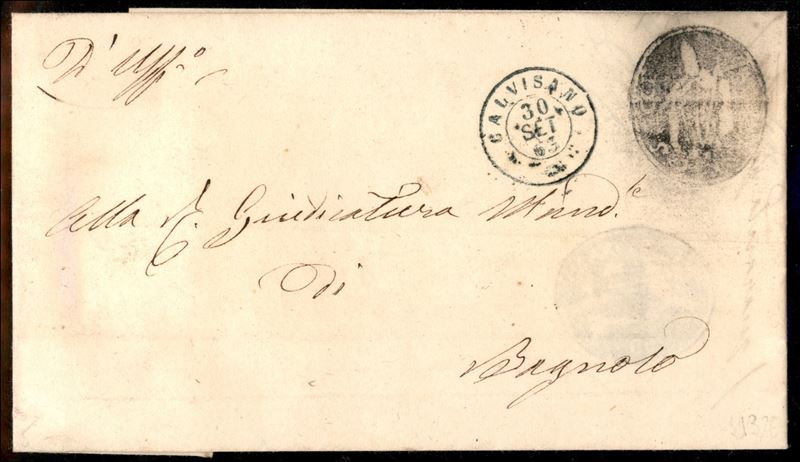 D' Uff.o
CALVISANO
30
SET
63
Alla R. Giudicatura Mand.le
di
Bagnolo